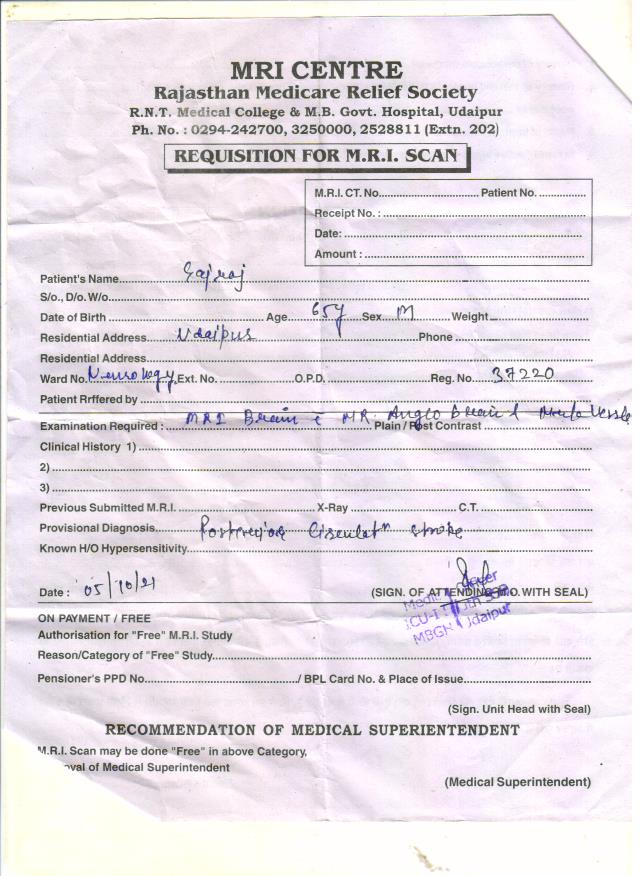 MRI CENTRE
Rajasthan Medicare Relief Society
R.N.T. Medical College & M.B. Govt. Hospital, Udaipur
Ph. No. : 0294-242700, 3250000, 2528811 (Extn. 202)
REQUISITION FOR M.R.I. SCAN
M.R.I.CT. No.................... Patient No. ..............
Receipt No. : ..............
Date: ..............
Amount : ..............
Patient's Name.......... Gajraj
S/o., D/o. W/o..............
Date of Birth .............. Age 65y Sex M Weight..............
Residential Address.......... Udaipur Phone ..............
Residential Address..............
Ward No. Neurology Ext. No. .............. O.P.D. .............. Reg. No. 37220
Patient Rrffered by ..............
Examination Required : MRI Brain c MR Angio Brain & Neck Vessels Plain / Post Contrast ..............
Clinical History 1) ..............
2) ..............
3) ..............
Previous Submitted M.R.I. .............. X-Ray .............. C.T. ..............
Provisional Diagnosis.......... Posterior Circulatn stroke
Known H/O Hypersensitivity..............
Date : 05/10/21 (SIGN. OF ATTENDING M.O. WITH SEAL)
Udaipur
ON PAYMENT / FREE
Authorisation for "Free" M.R.I. Study
Reason/Category of "Free" Study..............
Pensioner's PPD No. ............../ BPL Card No. & Place of Issue..............
(Sign. Unit Head with Seal)
RECOMMENDATION OF MEDICAL SUPERIENTENDENT
M.R.I. Scan may be done "Free" in above Category,
oval of Medical Superintendent
(Medical Superintendent)